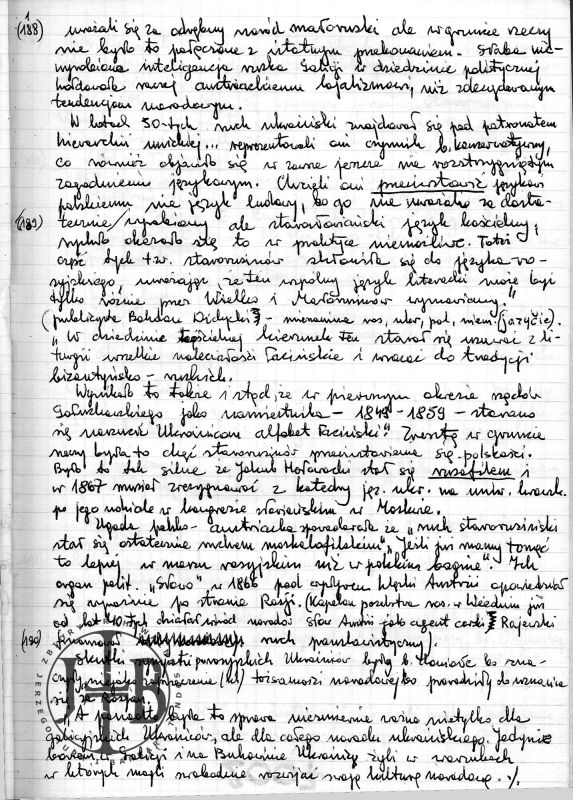 (188) uważali się za odrębny naród małoruski ale w gruncie rzeczy
nie było to połączone z istotnym przekonaniem. Słaba nie-
wyrobiona inteligencja ruska Galicji w dziedzinie politycznej
hołdowała raczej austriackiemu lojalizmowi, niż zdecydowanym
tendencjom narodowym.
W latach 50-tych ruch ukraiński znajdował się pod patronatem
hierarchii unickiej... reprezentowali oni czynnik b. konserwatywny,
co również objawiło się w zawsze jeszcze nie rozstrzygniętym
zagadnieniu językowym. Chcieli oni przeciwstawić językowi
polskiemu nie język ludowy, bo go nie uważano za dosta-
(189) tecznie/wyrobiony ale starosłowiański język kościelny,
rychło okazało się to w praktyce niemożliwe. Toteż
część tych tzw. starorusinów skłaniała się do języka ro-
syjskiego, uważając, że ten wspólny język literacki może być
tylko różnie przez Wielko i Małorusinów wymawiany."
(publicysta Bohdan Didycki - mieszanina ros, ukr, pol, niem. (jazyčie).
"W dziedzinie kościelnej kierunek ten starał się usuwać z li-
turgii wszelkie naleciałości łacińskie i wracać do tradycji
bizantyńsko - ruskich.
Wynikało to także i stąd, że w pierwszym okresie rządów
Gołuchowskiego jako namiestnika - 1849 - 1859 - starano
się narzucić Ukraińcom alfabet łaciński." Zresztą w gruncie
rzeczy była to chęć starorusinów przeciwstawienia się polskości.
Było to tak silne że Jakub Hołowacki stał się rusofilem i
w 1867 musiał zrezygnować z katedry jęz. ukr. na uniw. lwowsk.
po jego udziale w kongresie słowiańskim w Moskwie.
Ugoda polsko - austriacka spowodowała że "ruch staroruśiński
stał się ostatecznie ruchem moskalofilskim" "Jeśli już mamy tonąć
to lepiej w morzu rosyjskim niż w polskim bagnie". Ich
organ polit. "Słowo" w 1866 pod wpływem klęski Austrii opowiedział
się wyraźnie po stronie Rosji. (Kapelan poselstwa ros. w Wiedniu już
od lat 40-tych działał wśród narodów słow Austrii jako agent carski Rajewski
(190) finansował ruch panslawistyczny).
Skutki sympatii prorosyjskich Ukraińców były b. tłumione bo zna-
czyły niejako zaprzeczenie (ich) tożsamości narodowej bo prowadziły do uznania
się za Rosjan.
A ponadto była to sprawa niezmiernie ważna nietylko dla
galicyjskich Ukraińców, ale dla całego narodu ukraińskiego. Jedynie
bowiem w Galicji i na Bukowinie Ukraińcy żyli w warunkach
w których mogli swobodnie rozwijać swoją kulturę narodową. ./.